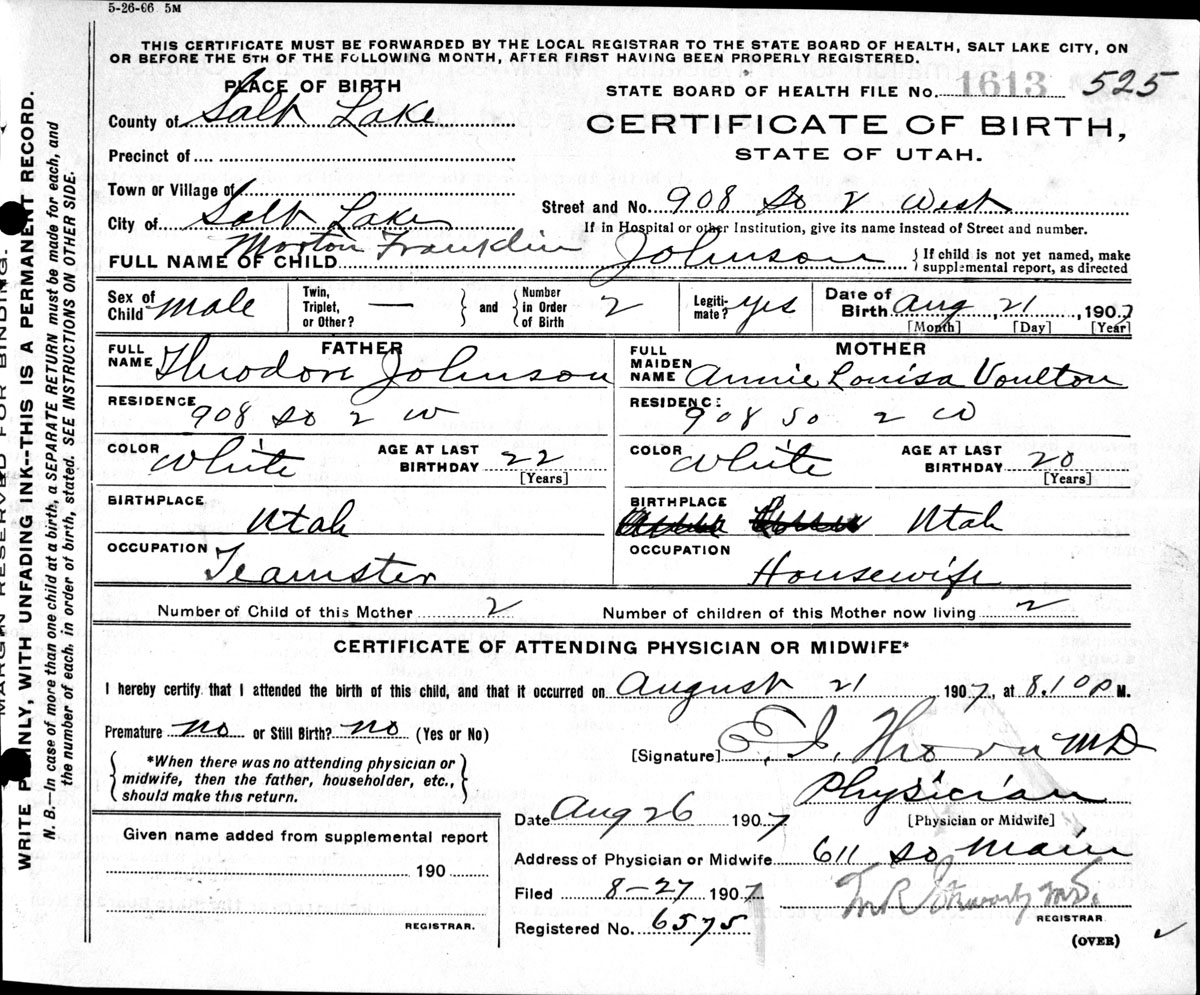 5-26-06 5M
THIS CERTIFICATE MUST BE FORWARDED BY THE LOCAL REGISTRAR TO THE STATE BOARD OF HEALTH, SALT LAKE CITY, ON
OR BEFORE THE 5TH OF THE FOLLOWING MONTH, AFTER FIRST HAVING BEEN PROPERLY REGISTERED.
PLACE OF BIRTH
STATE BOARD OF HEALTH FILE No. 1613 525
County of Salt Lake
CERTIFICATE OF BIRTH,
Precinct of
STATE OF UTAH.
Town or Village of
Street and No. 908 So 2 West
City of Salt Lake
If in Hospital or other Institution, give its name instead of Street and number.
FULL NAME OF CHILD Morton Franklin Johnson { If child is not yet named, make
supplemental report, as directed
Sex of Child Male
Twin, Triplet, or Other? —
and
Number in Order of Birth 2
Legiti- mate? yes
Date of Birth Aug 21, 1907
[Month] [Day] [Year]
FATHER
FULL NAME Theodore Johnson
MOTHER
FULL MAIDEN NAME Annie Louisa Voulton
RESIDENCE 908 So 2 W
RESIDENCE 908 So 2 W
COLOR White AGE AT LAST BIRTHDAY 22 [Years]
COLOR White AGE AT LAST BIRTHDAY 20 [Years]
BIRTHPLACE Utah
BIRTHPLACE Utah
OCCUPATION Teamster
OCCUPATION Housewife
Number of Child of this Mother 2 Number of children of this Mother now living 2
CERTIFICATE OF ATTENDING PHYSICIAN OR MIDWIFE*
I hereby certify that I attended the birth of this child, and that it occurred on August 21 1907, at 8.10 P M.
Premature no or Still Birth? no (Yes or No)
[Signature] E. I. M D
*When there was no attending physician or
midwife, then the father, householder, etc.,
should make this return.
Physician
[Physician or Midwife]
Date Aug 26 1907
Given name added from supplemental report
190
REGISTRAR.
Address of Physician or Midwife 611 So Main
Filed 8-27 1907
REGISTRAR
Registered No. 6575
(OVER)
MARGIN RESERVED FOR BINDING.
WRITE PLAINLY, WITH UNFADING INK--THIS IS A PERMANENT RECORD.
N. B.—In case of more than one child at a birth, a SEPARATE RETURN must be made for each, and
the number of each, in order of birth, stated. SEE INSTRUCTIONS ON OTHER SIDE.